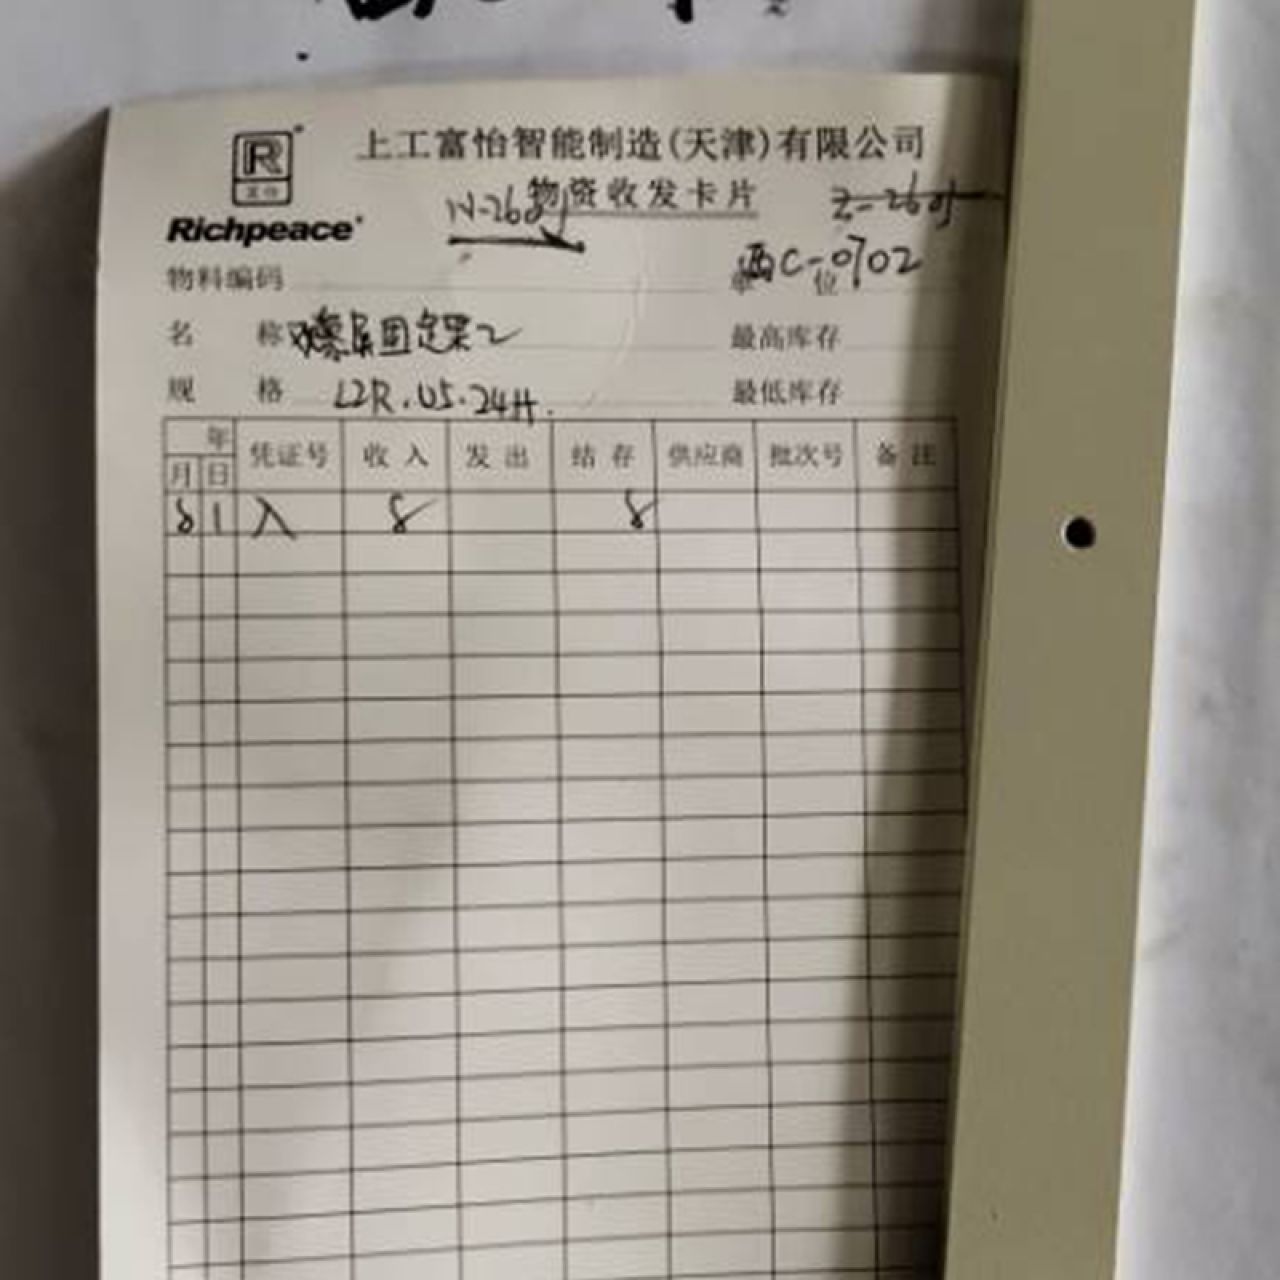 R
富怡
Richpeace
上工富怡智能制造(天津)有限公司
物资收发卡片
物料编码
单位
西C-0702
名称
固定架2
最高库存
规格 L2R.U5.24H.
最低库存
年
月 日 凭证号 收入 发出 结存 供应商 批次号 备注
8 1 入 8 8